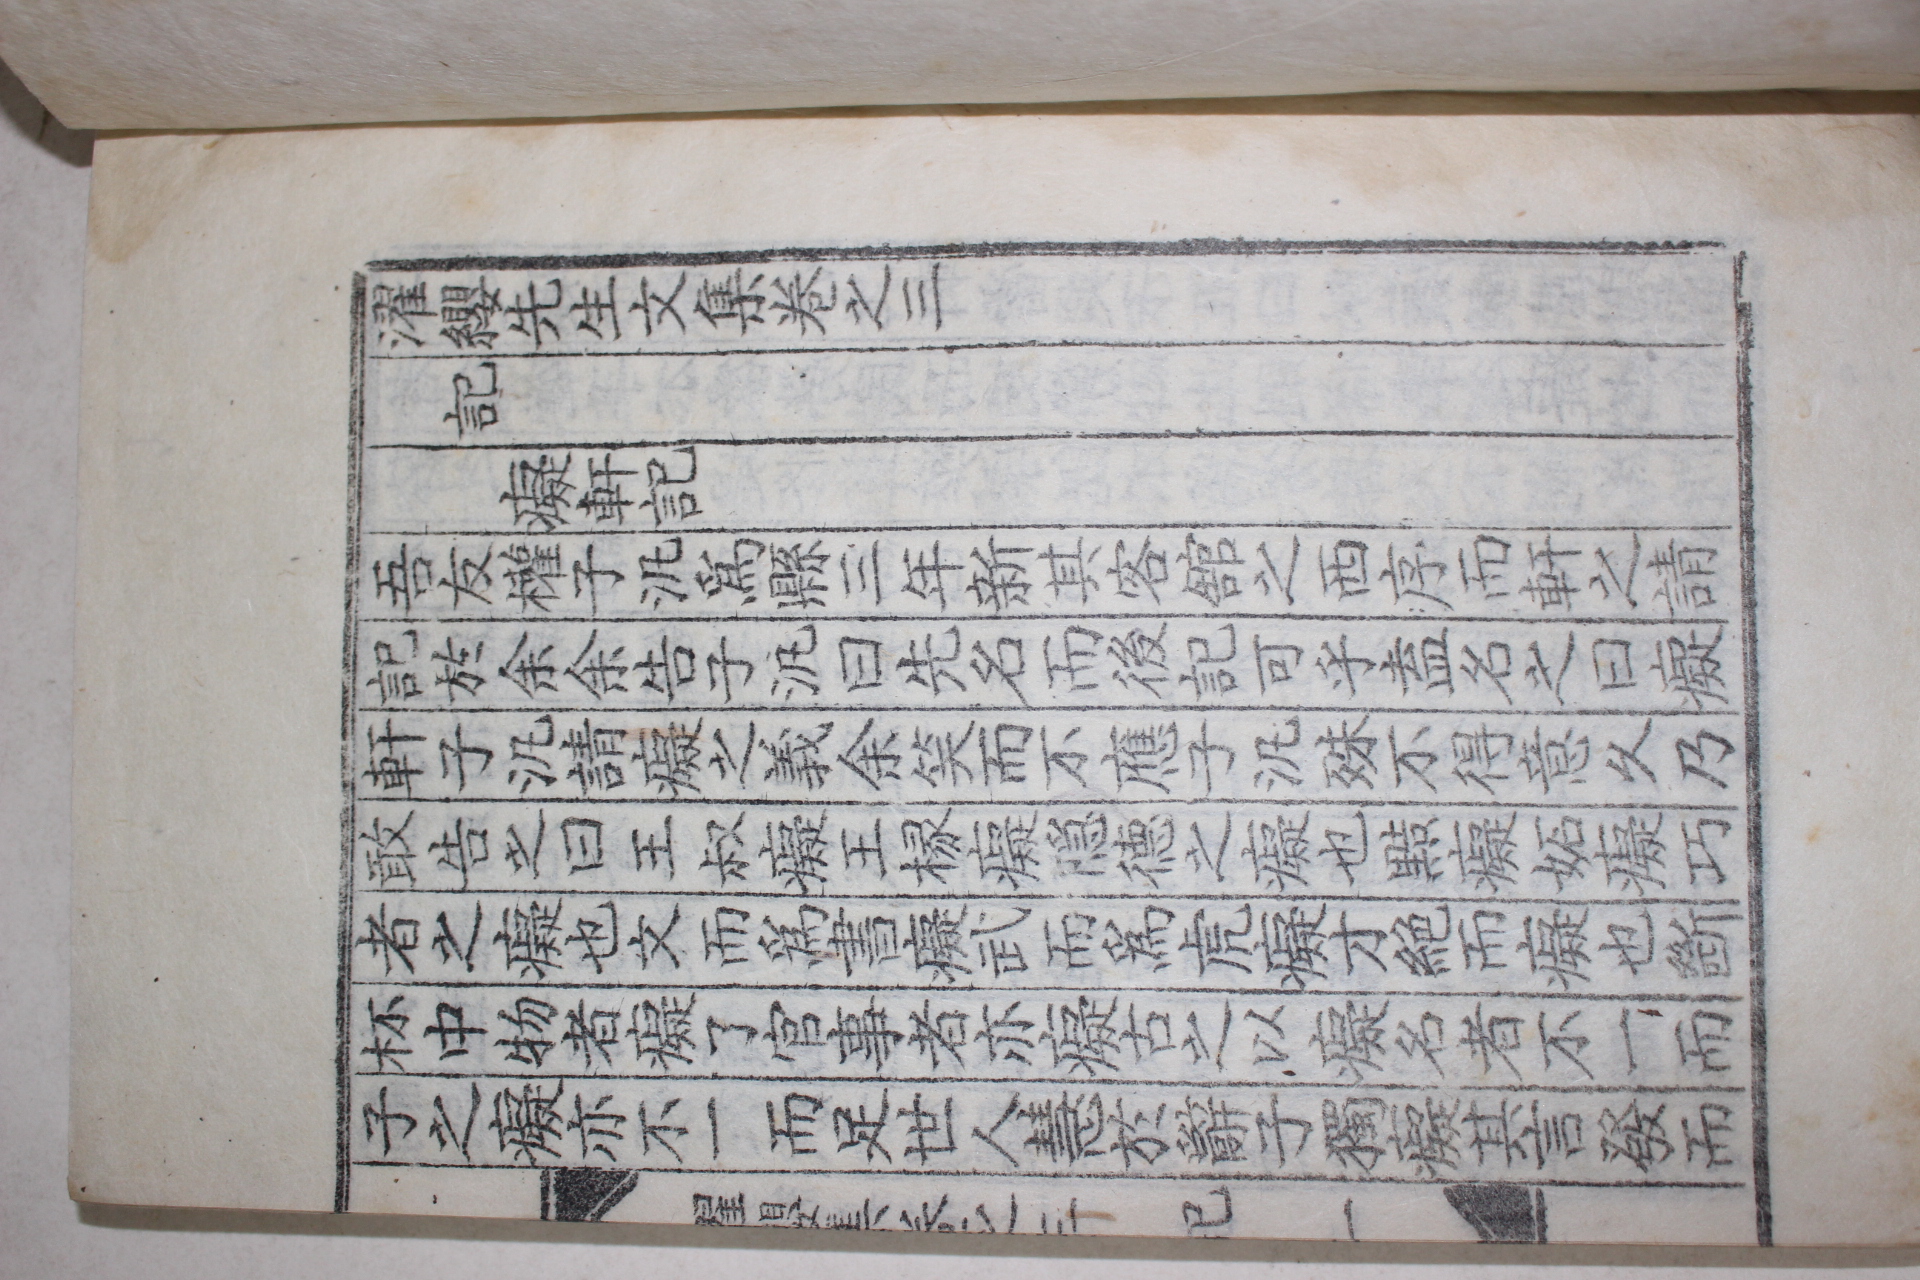 濯纓先生文集卷之三
記
癡軒記
吾友權子汎爲縣三年新其客館之西序而軒之請
記於余余告子汎曰先名而後記可乎盍名之曰癡
軒子汎請癡之義余笑而不應子汎殊不得意久乃
敢告之曰王叔癡王掾癡隱德之癡也黠癡妬癡巧
者之癡也文而爲書癡武而爲虎癡才絕而癡也斷
杯中物者癡了官事者亦癡古之以癡名者不一而
子之癡亦不一而足世人慧於辭子獨癡其言發而
濯纓集卷之三 記 一